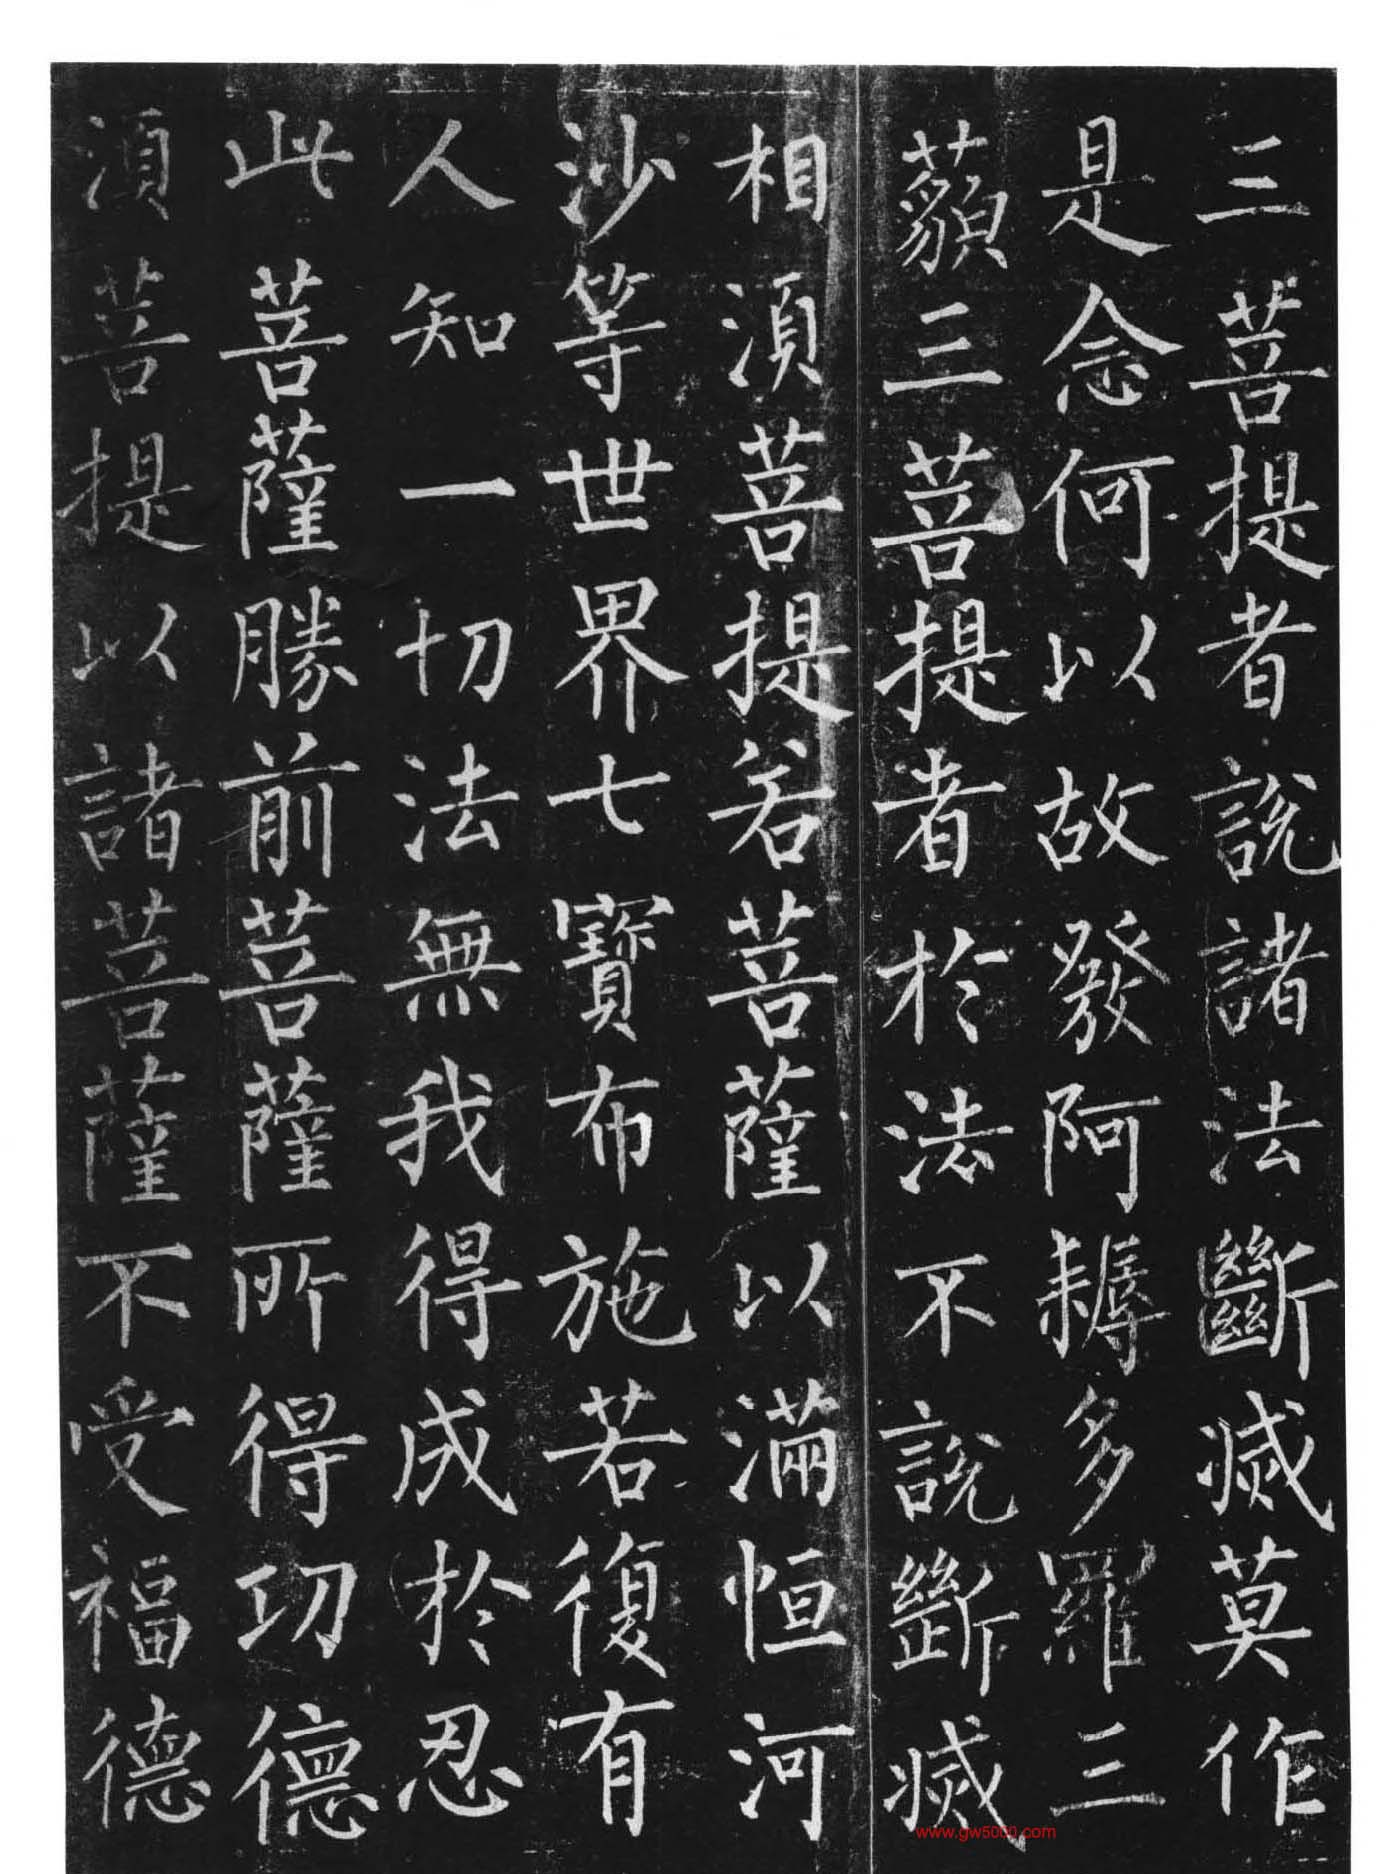 三菩提者説諸法斷滅莫作
是念何以故發阿耨多羅三
藐三菩提者於法不説斷滅
相湏菩提若菩薩以滿恒河
沙等世界七寶布施若復有
人知一切法無我得成於忍
此菩薩勝前菩薩所得功德
湏菩提以諸菩薩不受福德
www.gw5000.com